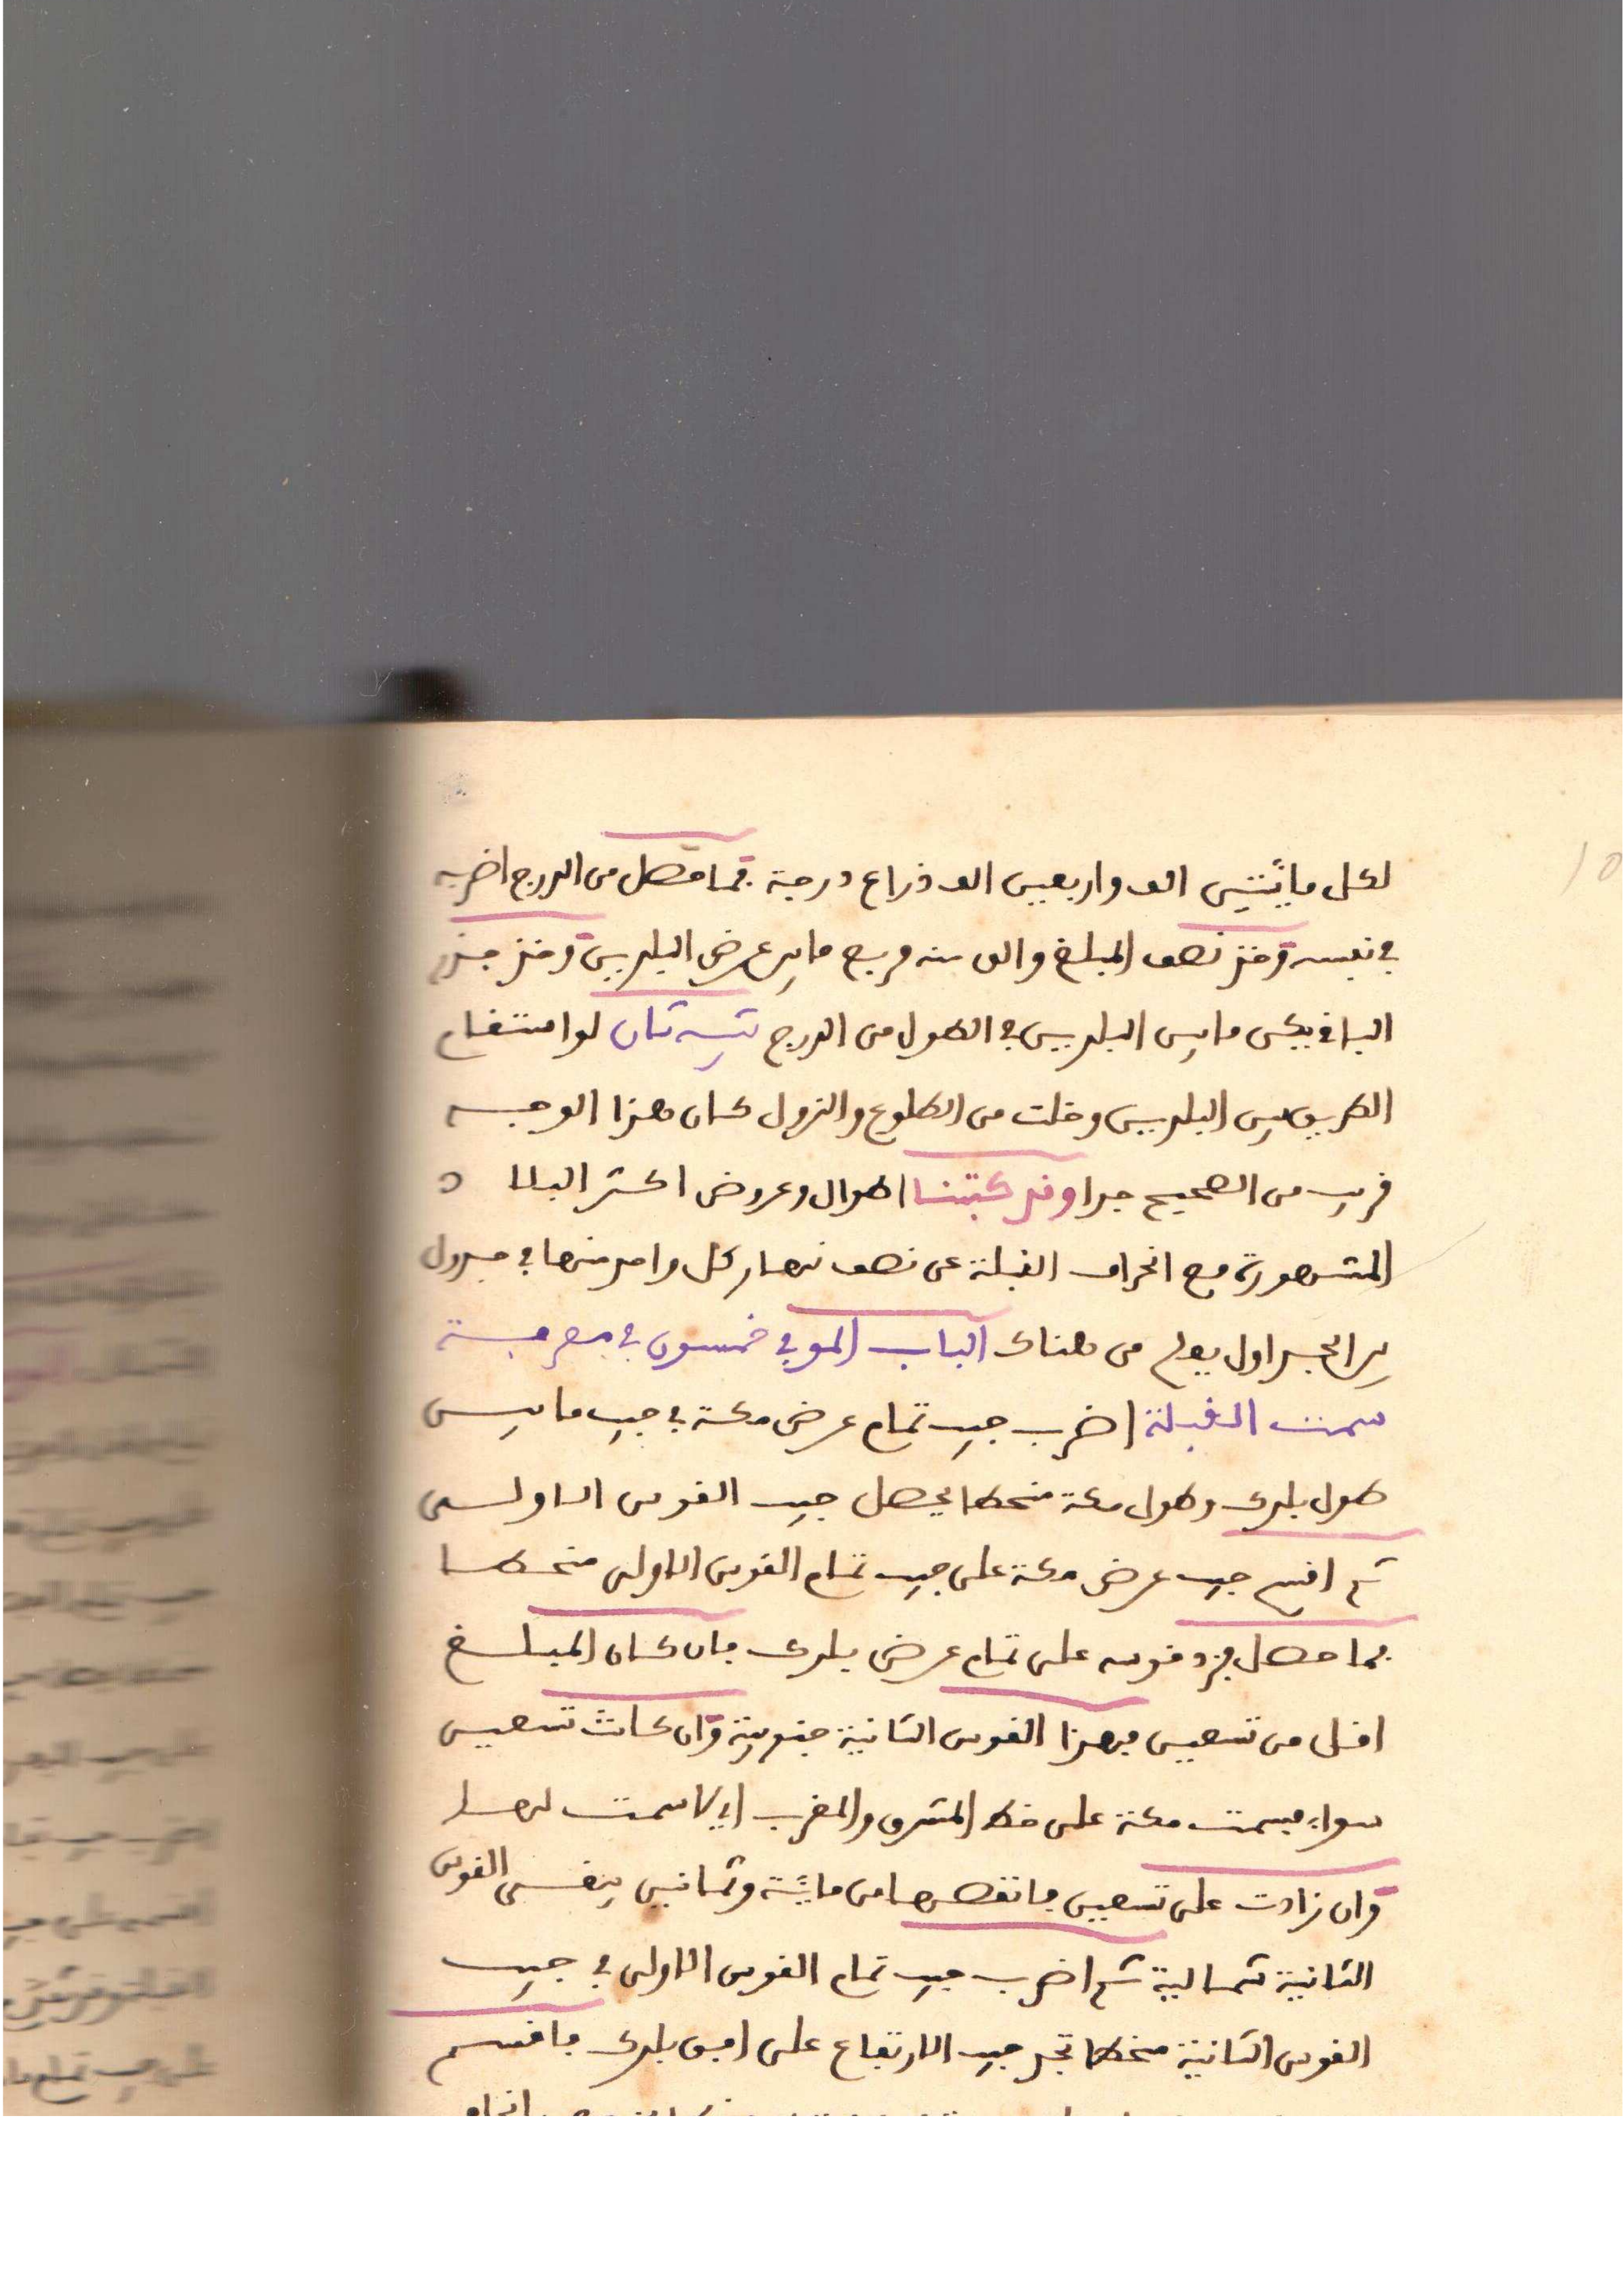 لكل مائتين الف واربعين الف ذراع درجة فما حصل من الدرج اضربه
في نفسه وخذ نصف المبلغ والق منه مربع ما بين عرض البلدين وخذ جذر
الباقي يكن ما بين البلدين في الطول من الدرج تنبيه ثان لو استقام
الطريق بين البلدين وخلت من الطلوع والنزول كان هذا الوجه
قريب من الصحيح جدا وقد كتبنا اطوال وعروض اكثر البلاد
المشهورة مع انحراف القبلة عن نصف نهار كل واحد منها في جدول
بين الجداول يعلم من هناك الباب الموفي خمسون في معرفة
سمت القبلة اضرب جيب تمام عرض مكة في جيب ما بين
طول بلدك وطول مكة منحطا يحصل جيب القوس الاولى
ثم اقسم جيب عرض مكة على جيب تمام القوس الاولى منحطا
فما حصل فزد قوسه على تمام عرض بلدك فان كان المبلغ
اقل من تسعين فهذا القوس الثانية جنوبية وان كانت تسعين
سواء فسمت مكة على خط المشرق والمغرب اي لا سمت لها
وان زادت على تسعين فانقصها من مائية وثمانين يبقى القوس
الثانية شمالية ثم اضرب جيب تمام القوس الاولى في جيب
القوس الثانية منحطا تجد جيب الارتفاع على افق بلدك فاقسم